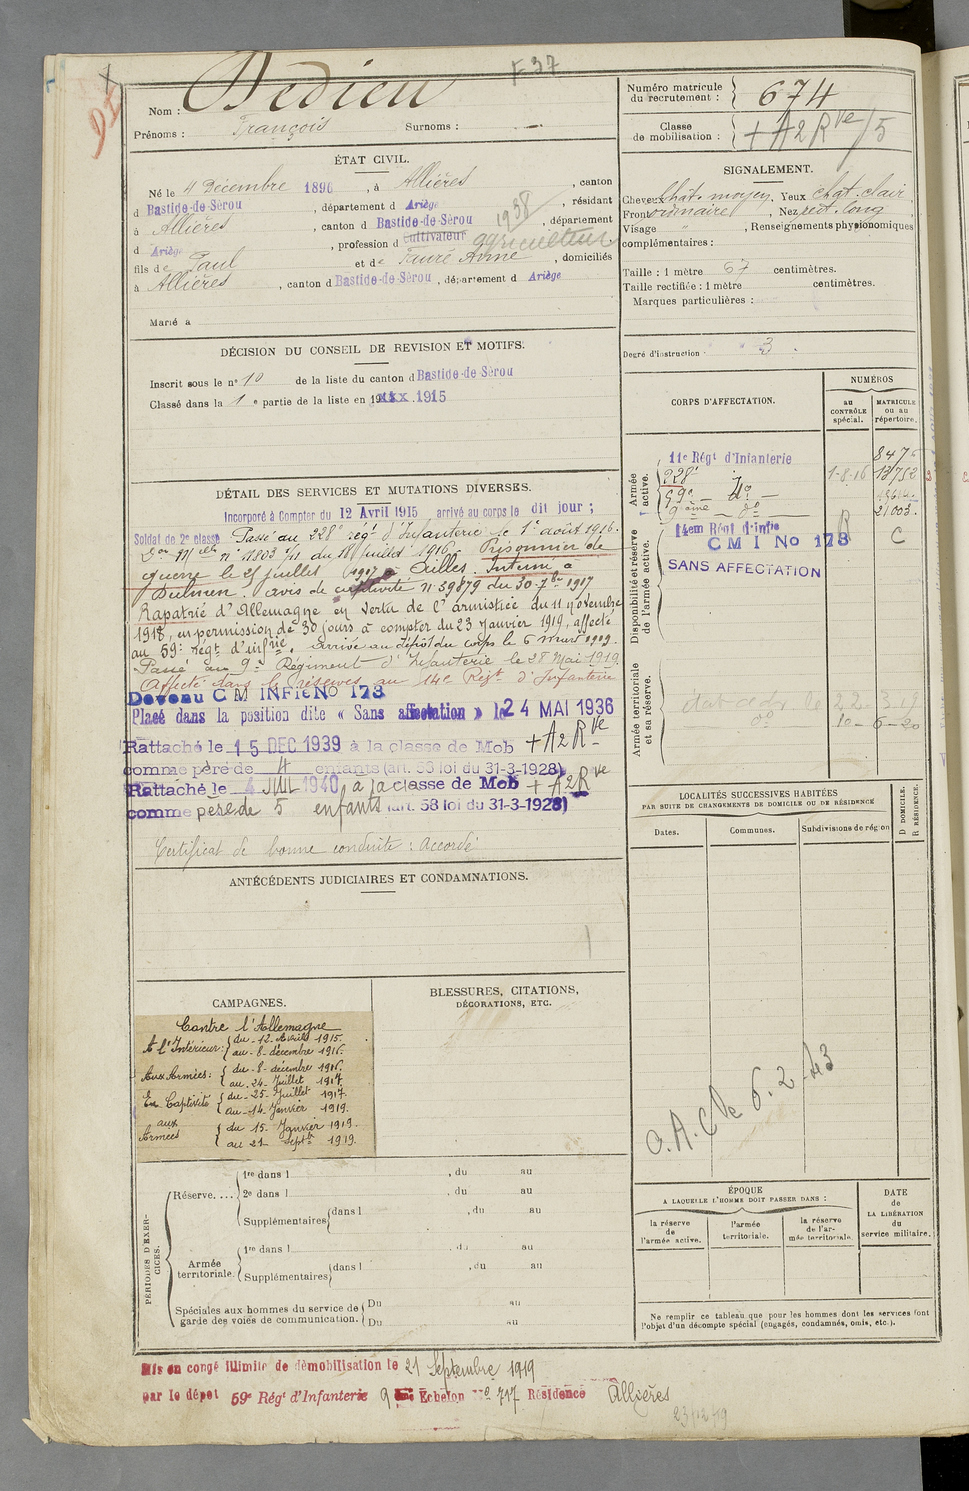 F 37
Nom : Dedieu
Prénoms : François Surnoms : —
Numéro matricule du recrutement : 674
Classe de mobilisation : + A2 Rve /5
ÉTAT CIVIL.
Né le 4 Décembre 1896, à Allières, canton
d Bastide-de-Sérou, département d Ariège, résidant
à Allières, canton d Bastide-de-Sérou, département
d Ariège, profession d cultivateur agriculteur 1938
fils de Paul et de Fauré Anne, domiciliés
à Allières, canton d Bastide-de-Sérou, département d Ariège
Marié à
SIGNALEMENT.
Cheveux chât. moyen Yeux chât. clair,
Front ordinaire, Nez rect. long,
Visage ", Renseignements physionomiques
complémentaires :
Taille : 1 mètre 67 centimètres.
Taille rectifiée : 1 mètre centimètres.
Marques particulières :
Degré d'instruction : 3.
DÉCISION DU CONSEIL DE REVISION ET MOTIFS.
Inscrit sous le n° 10 de la liste du canton d Bastide-de-Sérou
Classé dans la 1e partie de la liste en 1915
DÉTAIL DES SERVICES ET MUTATIONS DIVERSES.
Incorporé à Compter du 12 Avril 1915 arrivé au corps le dit jour ;
Soldat de 2e classe Passé au 228e régt d'Infanterie le 1er août 1916.
n° 1803 1/1 du 18 juillet 1916. Prisonnier de
guerre le 25 juillet 1917 à Ailles. Interné à
Dulmen. avis de captivité n° 39879 du 30-7bre 1917
Rapatrié d'Allemagne en vertu de l'armistice du 11 novembre
1918, en permission de 30 jours à compter du 23 janvier 1919, affecté
au 59e régt d'infrie. Arrivé au dépôt du corps le 6 mars 1919.
Passé au 9e Régiment d'Infanterie le 28 Mai 1919.
Affecté dans la réserve au 14e Régt d'Infanterie
Devenu C M INFie No 173
Placé dans la position dite « Sans affectation » le 24 MAI 1936
Rattaché le 15 DEC 1939 à la classe de Mob + A2 Rve
comme père de 4 enfants (art. 58 loi du 31-3-1928)
Rattaché le 4 JUIL 1940 à la classe de Mob + A2 Rve
comme père de 5 enfants (art. 58 loi du 31-3-1928)
Certificat de bonne conduite : Accordé
CORPS D'AFFECTATION.
NUMÉROS
au CONTRÔLE spécial.
MATRICULE ou au répertoire.
Armée active.
11e Régt d'Infanterie 8475
228e do 1-8-16 13752
59e do
9ème do 21003.
Disponibilité et réserve de l'armée active.
14em Régt d'infie R C
C M I No 173
SANS AFFECTATION
Armée territoriale et sa réserve.
10-6-20
LOCALITÉS SUCCESSIVES HABITÉES
PAR SUITE DE CHANGEMENTS DE DOMICILE OU DE RÉSIDENCE
Dates. Communes. Subdivisions de région
D DOMICILE. R RÉSIDENCE.
ANTÉCÉDENTS JUDICIAIRES ET CONDAMNATIONS.
CAMPAGNES.
Contre l'Allemagne
A l'Intérieur : du - 12 - Avril 1915.
au - 8 - décembre 1916.
Aux Armées : du - 8 - décembre 1916.
au 24 - Juillet 1917.
En Captivité du - 25 - Juillet 1917.
au - 14 - Janvier 1919.
aux Armées du 15 - Janvier 1919.
au 21 - Septbre 1919.
BLESSURES, CITATIONS,
DÉCORATIONS, ETC.
6.2.43
PÉRIODES D'EXERCICES.
Réserve....
1re dans l , du au
2e dans l , du au
Supplémentaires dans l , du au
Armée territoriale.
1re dans l , du au
Supplémentaires dans l , du au
Spéciales aux hommes du service de garde des voies de communication. Du au
Du au
ÉPOQUE
A LAQUELLE L'HOMME DOIT PASSER DANS :
la réserve de l'armée active.
l'armée territoriale.
la réserve de l'armée territoriale.
DATE de LA LIBÉRATION du service militaire.
Ne remplir ce tableau que pour les hommes dont les services font
l'objet d'un décompte spécial (engagés, condamnés, omis, etc.).
Mis en congé illimité de démobilisation le 21 Septembre 1919
par le dépôt 59e Régt d'Infanterie 9 Echelon No 717 Résidence Allières